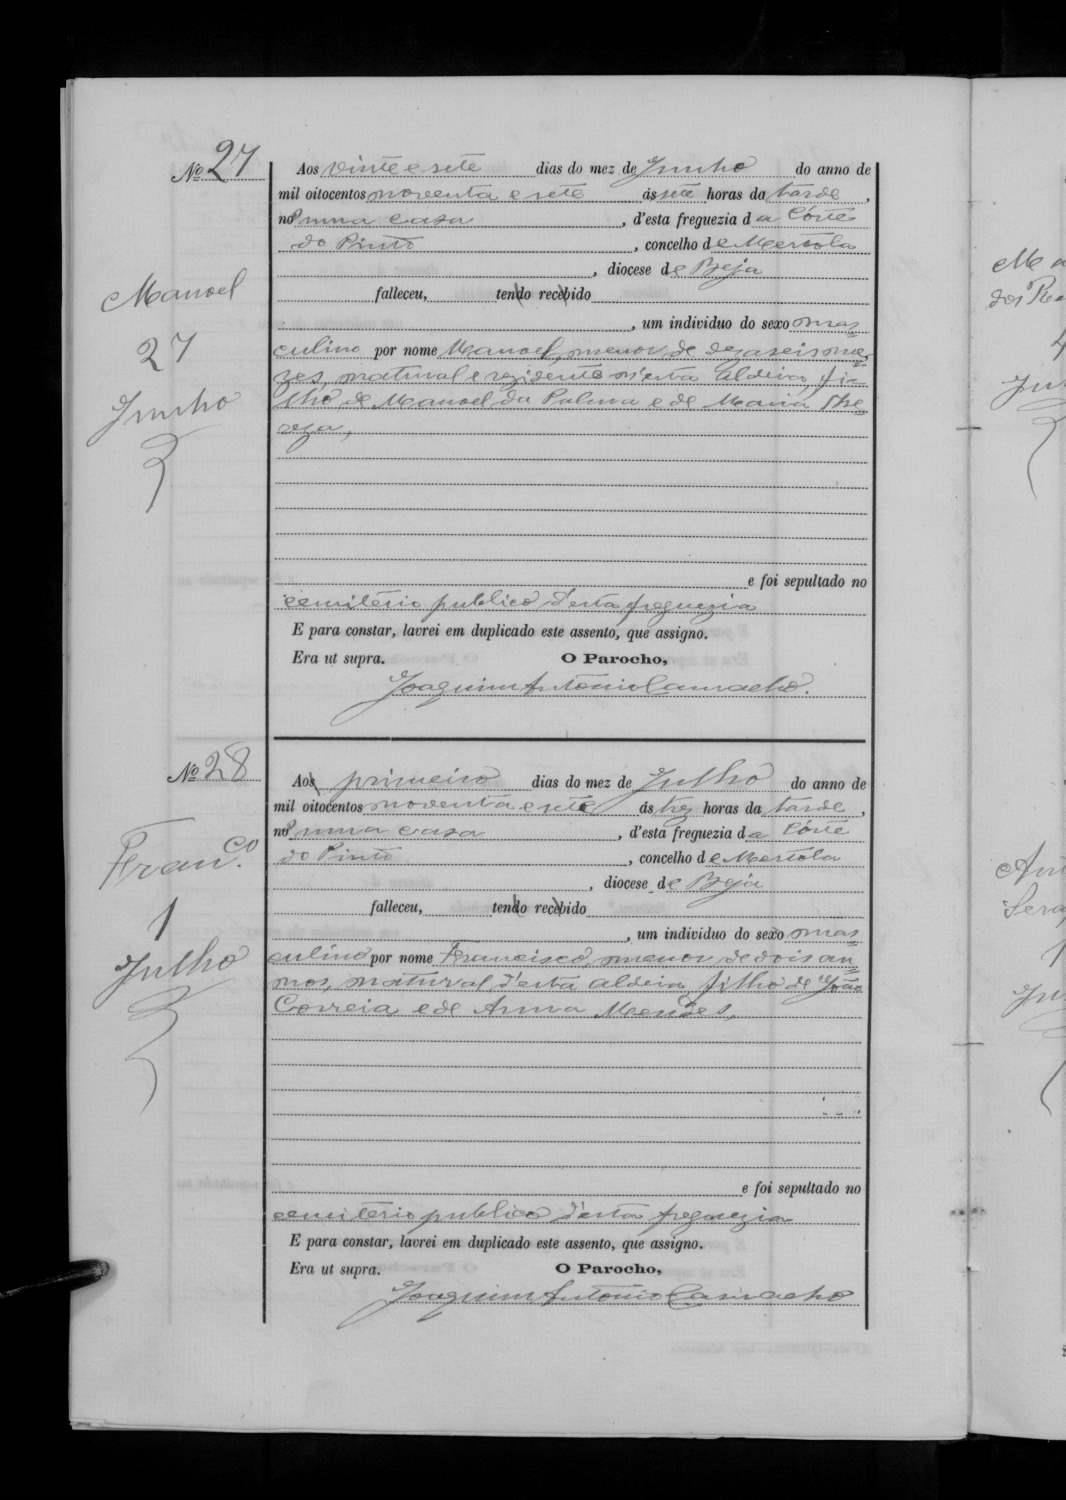 Nº 27
Aos vinte e sete dias do mez de Junho do anno de
mil oitocentos noventa e sete ás sete horas da tarde,
no numa casa, d'esta freguezia da Côrte
do Pinto, concelho de Mertola
, diocese de Beja
falleceu, tendo recebido
, um individuo do sexo mas
culino por nome Manoel, menor de dezaseis me
zes, natural e rezidente n'esta aldeia, fi-
lho de Manoel da Palma e de Maria The
reza,
e foi sepultado no
cemitério publico d'esta freguezia
E para constar, lavrei em duplicado este assento, que assigno.
Era ut supra. O Parocho,
Joaquim António Camacho.
Manoel
27
Junho
Nº 28
Aos primeiro dias do mez de Julho do anno de
mil oitocentos noventa e sete ás trez horas da tarde,
no numa casa, d'esta freguezia da Côrte
do Pinto, concelho de Mertola
, diocese de Beja
falleceu, tendo recebido
, um individuo do sexo mas
culino por nome Francisco, menor de dois an
nos, natural d'esta aldeia, filho de João
Correia e de Anna Mendes,
e foi sepultado no
cemitério publico d'esta freguezia
E para constar, lavrei em duplicado este assento, que assigno.
Era ut supra. O Parocho,
Joaquim António Camacho
Franco.
1
Julho